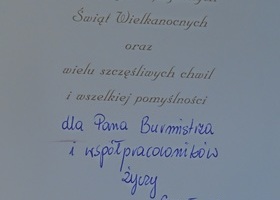 Świąt Wielkanocnych
oraz
wielu szczęśliwych chwil
i wszelkiej pomyślności
dla Pana Burmistrza
i współpracowników
życzy